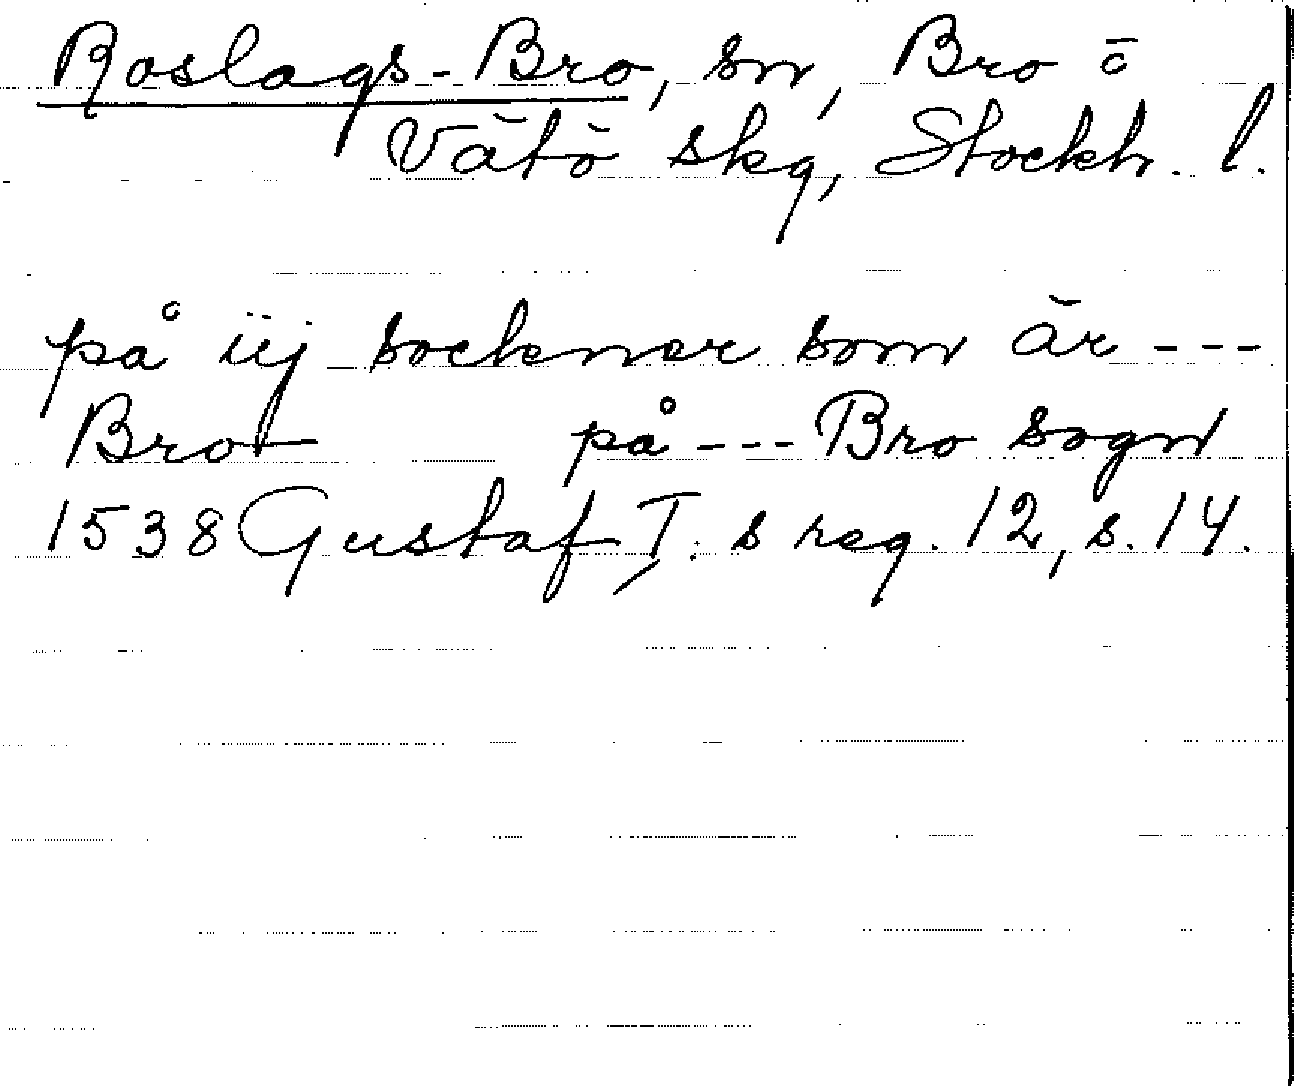 Roslags-Bro, sn, Bro o
Vätö skg, Stockh. l.
på iij socknar som är ---
Bro på --- Bro sogn
1538 Gustaf I:s reg. 12, s. 14.